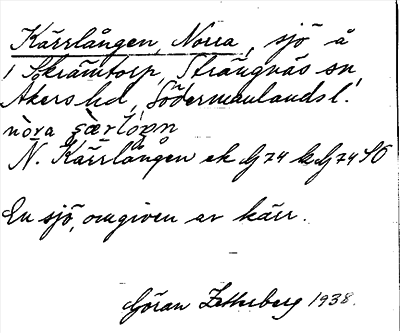 Kärrlången, Norra, sjö å
i Skrämtorp, Strängnäs sn,
Åkers hd, Södermanlands l.
nòra
N. Kärrlången ek G 74 ks G 74 SO
En sjö, omgiven av kärr.
Göran Zetterberg 1938.